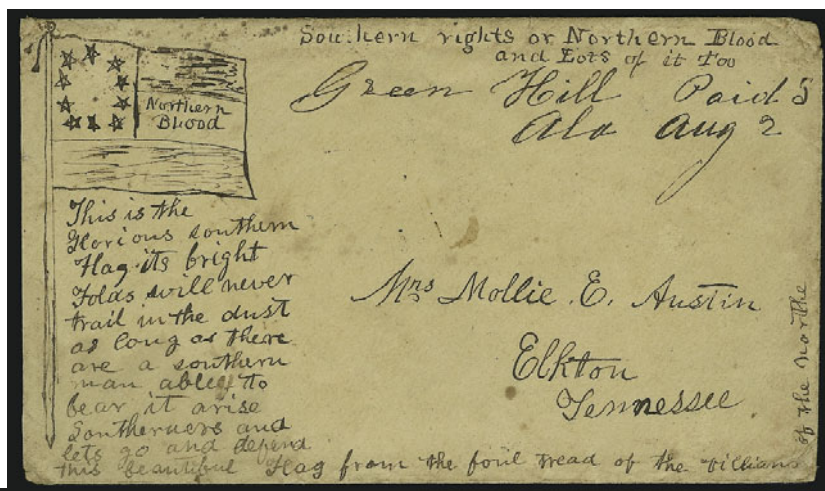 Southern rights or Northern Blood
and Lots of it Too
Green Hill Paid 5
Ala Aug 2
Northern
Blood
This is the
Glorious southern
Flag its bright
Folds will never
trail in the dust
as long as there
are a southern
man able to
bear it arise
Southerners and
lets go and defend
this beautiful Flag from the foul tread of the villians
of the northe
Mrs Mollie E. Austin
Elkton
Tennessee